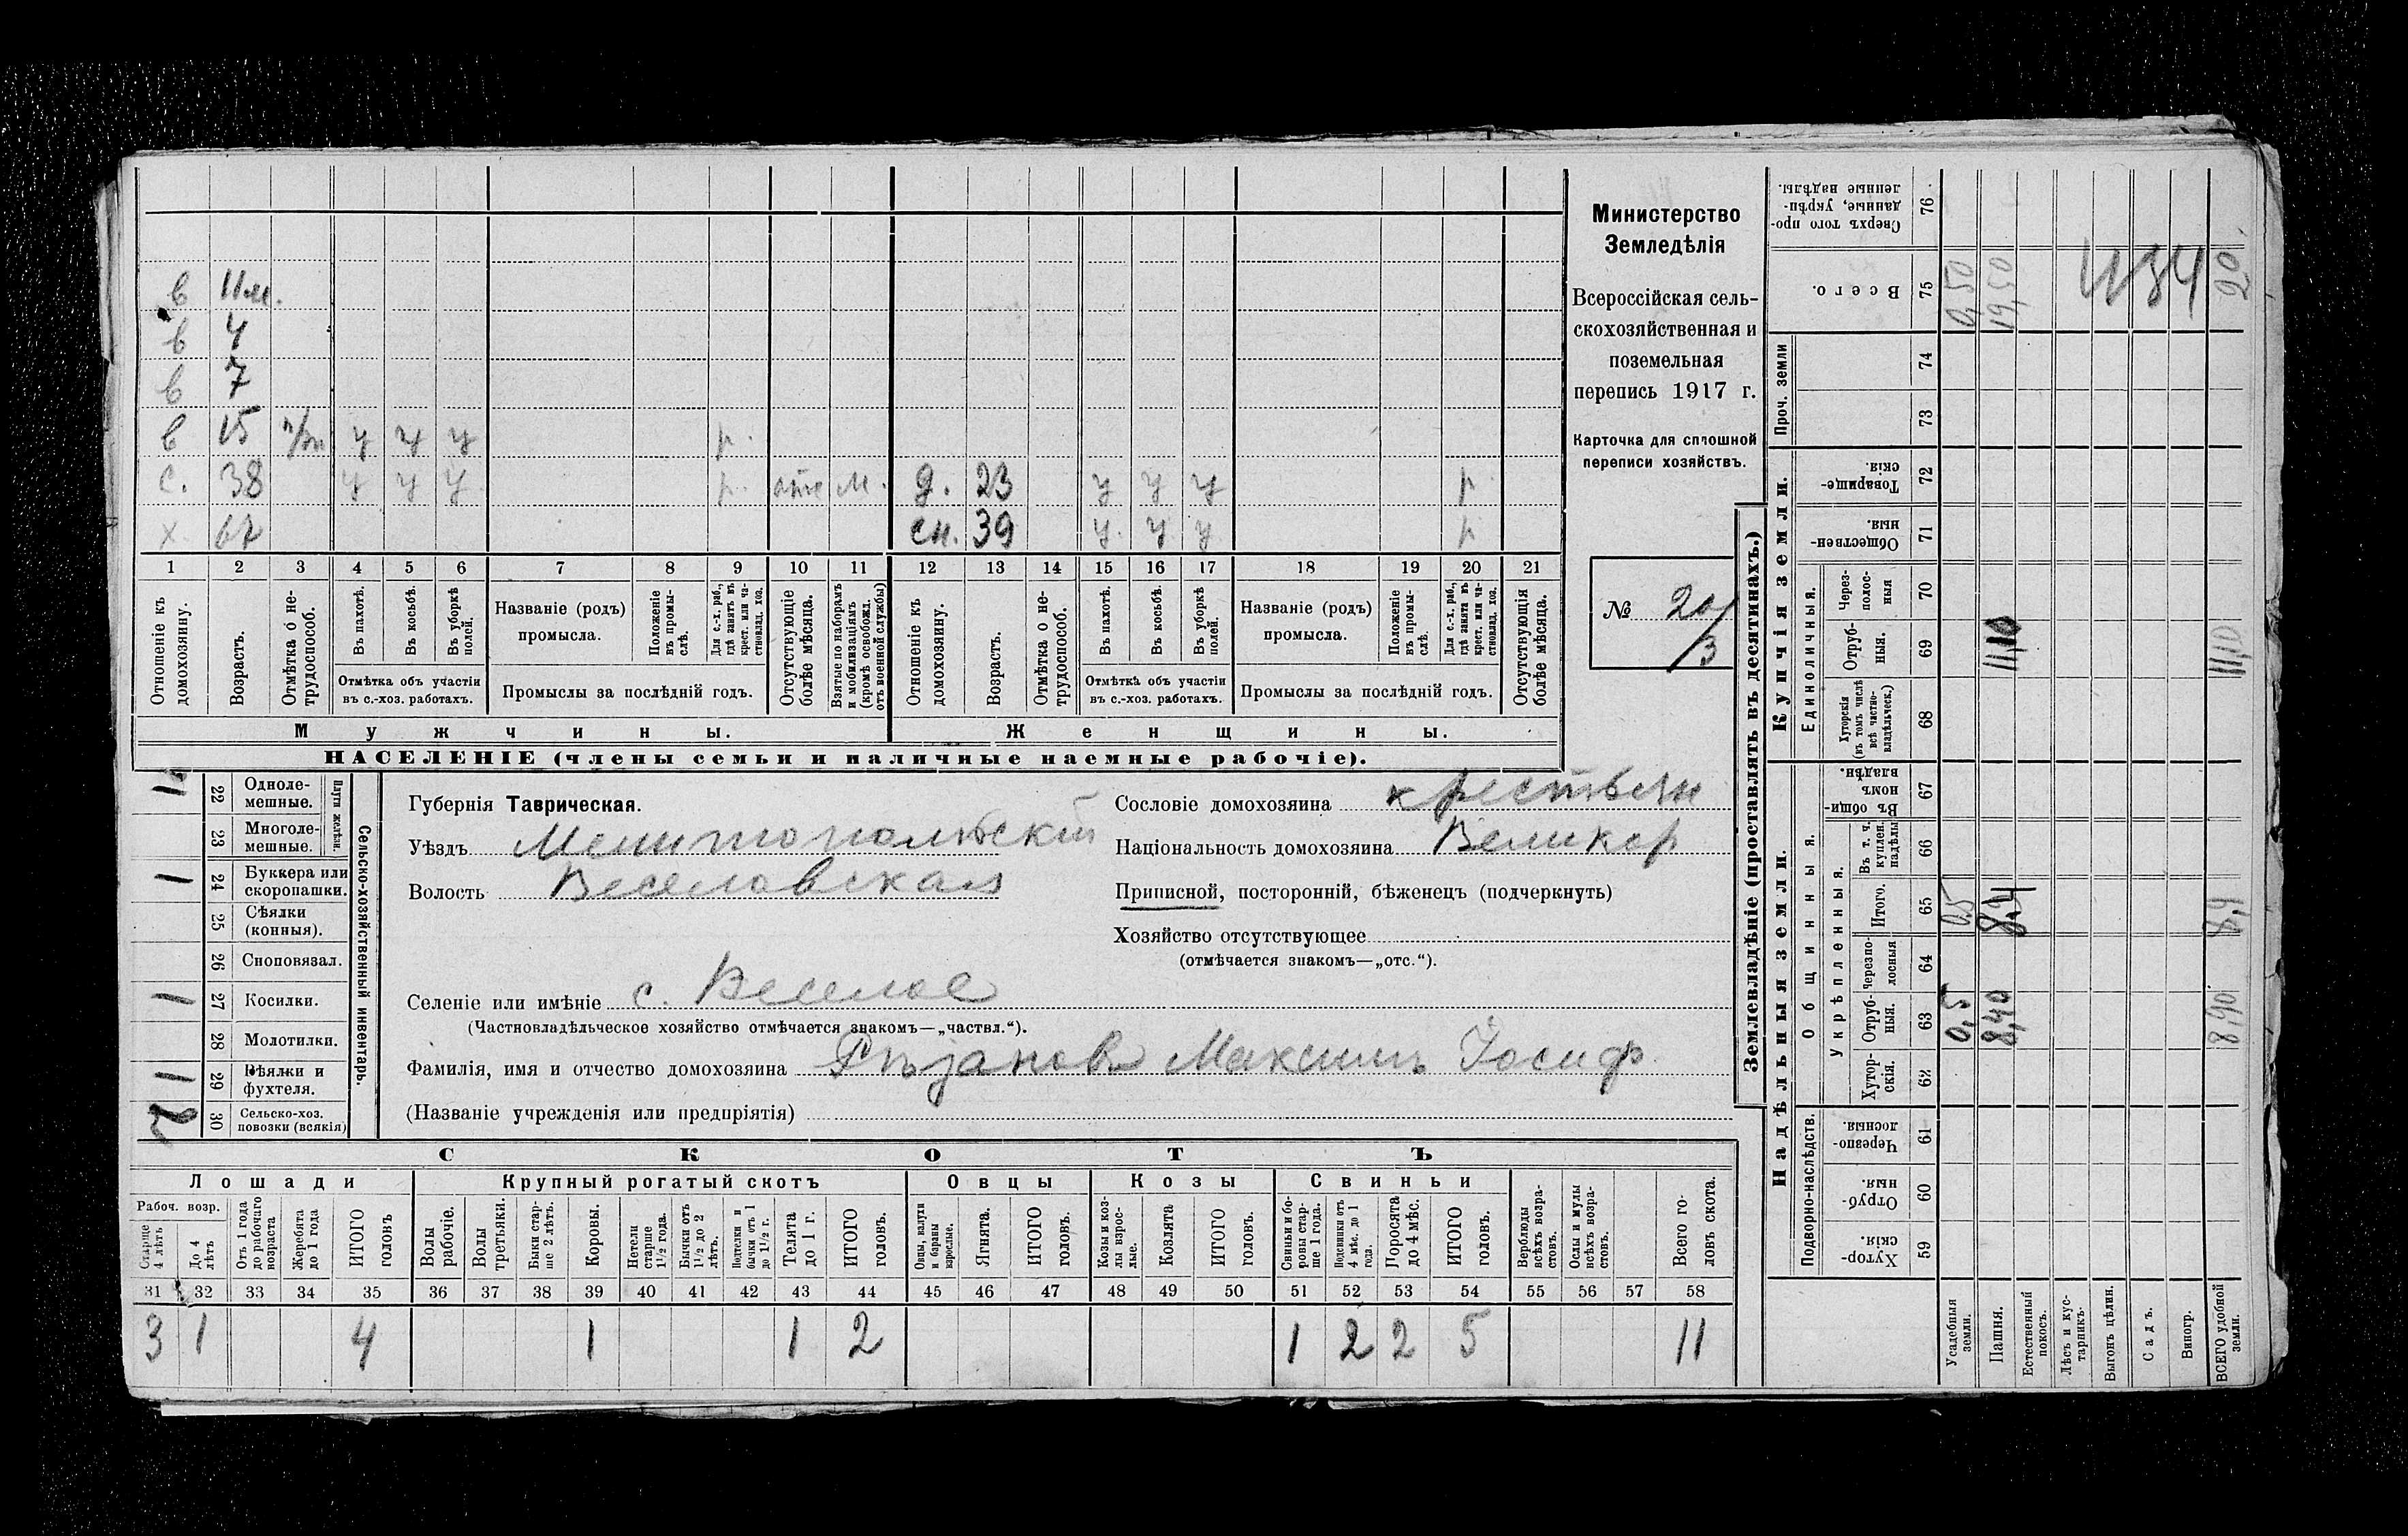 Министерство
Земледѣлія
Всероссійская сель-
скохозяйственная и
поземельная
перепись 1917 г.
Карточка для сплошной
переписи хозяйствъ.
№ 20/3
в 11 м.
в 4
в 7
в 15 п/р у у у р.
с. 38 у у у р. отс М. д. 23 у у у р.
х. 67 сн. 39 у. у у р
1 2 3 4 5 6 7 8 9 10 11 12 13 14 15 16 17 18 19 20 21
Отношеніе къ домохозяину.
Возрастъ.
Отмѣтка о не-трудоспособ.
Въ пахотѣ.
Въ косьбѣ.
Въ уборкѣ полей.
Отмѣтка объ участіи въ с.-хоз. работахъ.
Названіе (родъ) промысла.
Положеніе въ промы-слѣ.
Для с.-х. раб., гдѣ занятъ въ крест. или ча-стновлад. хоз.
Промыслы за послѣдній годъ.
Отсутствующіе болѣе мѣсяца.
Взятые по наборамъ и мобилизаціямъ (кромѣ освобожд. отъ военной службы)
Отношеніе къ домохозяину.
Возрастъ.
Отмѣтка о не-трудоспособ.
Въ пахотѣ.
Въ косьбѣ.
Въ уборкѣ полей.
Отмѣткѣ объ участіи въ с.-хоз. работахъ.
Названіе (родъ) промысла.
Положеніе въ промы-слѣ.
Для с.-х. раб., гдѣ занята въ крест. или ча-стновлад. хоз.
Промыслы за послѣдній годъ.
Отсутствующія болѣе мѣсяца.
Мужчины.
Женщины.
НАСЕЛЕНІЕ (члены семьи и наличные наемные рабочіе).
Сельско-хозяйственный инвентарь.
Плуги желѣзн.
22 Одноле-мешные.
23 Многоле-мешные.
24 Буккера или скоропашки. 1
25 Сѣялки (конныя).
26 Сноповязал.
27 Косилки. 1
28 Молотилки.
29 Вѣялки и фухтеля. 1
30 Сельско-хоз. повозки (всякія) 2
Губернія Таврическая.
Уѣздъ Мелитопольскій
Волость Веселовская
Селеніе или имѣніе с. Веселое
(Частновладѣльческое хозяйство отмѣчается знакомъ—„частвл.“).
Фамилія, имя и отчество домохозяина Рѣзановъ Максимъ Іосиф
(Названіе учрежденія или предпріятія)
Сословіе домохозяина крестьян
Національность домохозяина Великор
Приписной, посторонній, бѣженецъ (подчеркнуть)
Хозяйство отсутствующее
(отмѣчается знакомъ—„отс.“).
СКОТЪ
Лошади
Крупный рогатый скотъ
Овцы
Козы
Свиньи
Рабоч. возр.
Старше 4 лѣтъ
До 4 лѣтъ
Отъ 1 года до рабочаго возраста
Жеребята до 1 года
ИТОГО головъ
Волы рабочіе.
Волы третьяки.
Быки стар-ше 2 лѣтъ.
Коровы.
Нетели старше 1 1/2 года.
Бычки отъ 1 1/2 до 2 лѣтъ.
Подтелки и бычки отъ 1 до 1 1/2 г.
Телята до 1 г.
ИТОГО головъ.
Овцы, валухи и бараны взрослые.
Ягнята.
ИТОГО головъ.
Козы и коз-лы взрос-лые.
Козлята
ИТОГО головъ.
Свиньи и бо-ровы стар-ше 1 года.
Подсвинки отъ 4 мѣс. до 1 года.
Поросята до 4 мѣс.
ИТОГО головъ.
Верблюды всѣхъ возра-стовъ.
Ослы и мулы всѣхъ возра-стовъ.
Всего го-ловъ скота.
31 32 33 34 35 36 37 38 39 40 41 42 43 44 45 46 47 48 49 50 51 52 53 54 55 56 57 58
3 1 4 1 1 2 1 2 2 5 11
Землевладѣніе (проставлять въ десятинахъ.)
Надѣльныя земли.
Купчія земли.
Проч. земли
Подворно-наслѣдств.
Общинныя.
Укрѣпленныя.
Единоличныя.
Сверхъ того про-данные, укрѣп-ленные надѣлы. 76
Всего. 75 0,50 19,50 20
74
73
Товарище-скія. 72
Обществен-ныя. 71
Через-полос-ныя 70
Отруб-ныя. 69 11,10 11,10
Хуторскія (въ томъ числѣ всѣ частно-владѣльческ.) 68
Въ общин-номъ владѣн. 67
Въ т. ч. куплен. надѣлы 66
Итого. 65 0,5 8,4
Черезпо-лосныя 64
Отруб-ныя. 63 0,5 8,40 8,90
Хутор-скія. 62
Черезпо-лосныя. 61
Отруб-ныя. 60
Хутор-скія. 59
Усадебныя земли.
Пашня.
Естественный покосъ.
Лѣсъ и кус-тарникъ.
Выгонъ цѣлин.
Садъ.
Виногр.
ВСЕГО удобной земли.